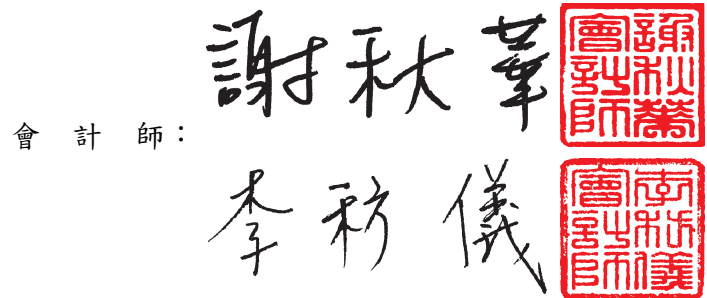 會計師：
謝秋華
謝秋華
會計師
李
儀
會計師